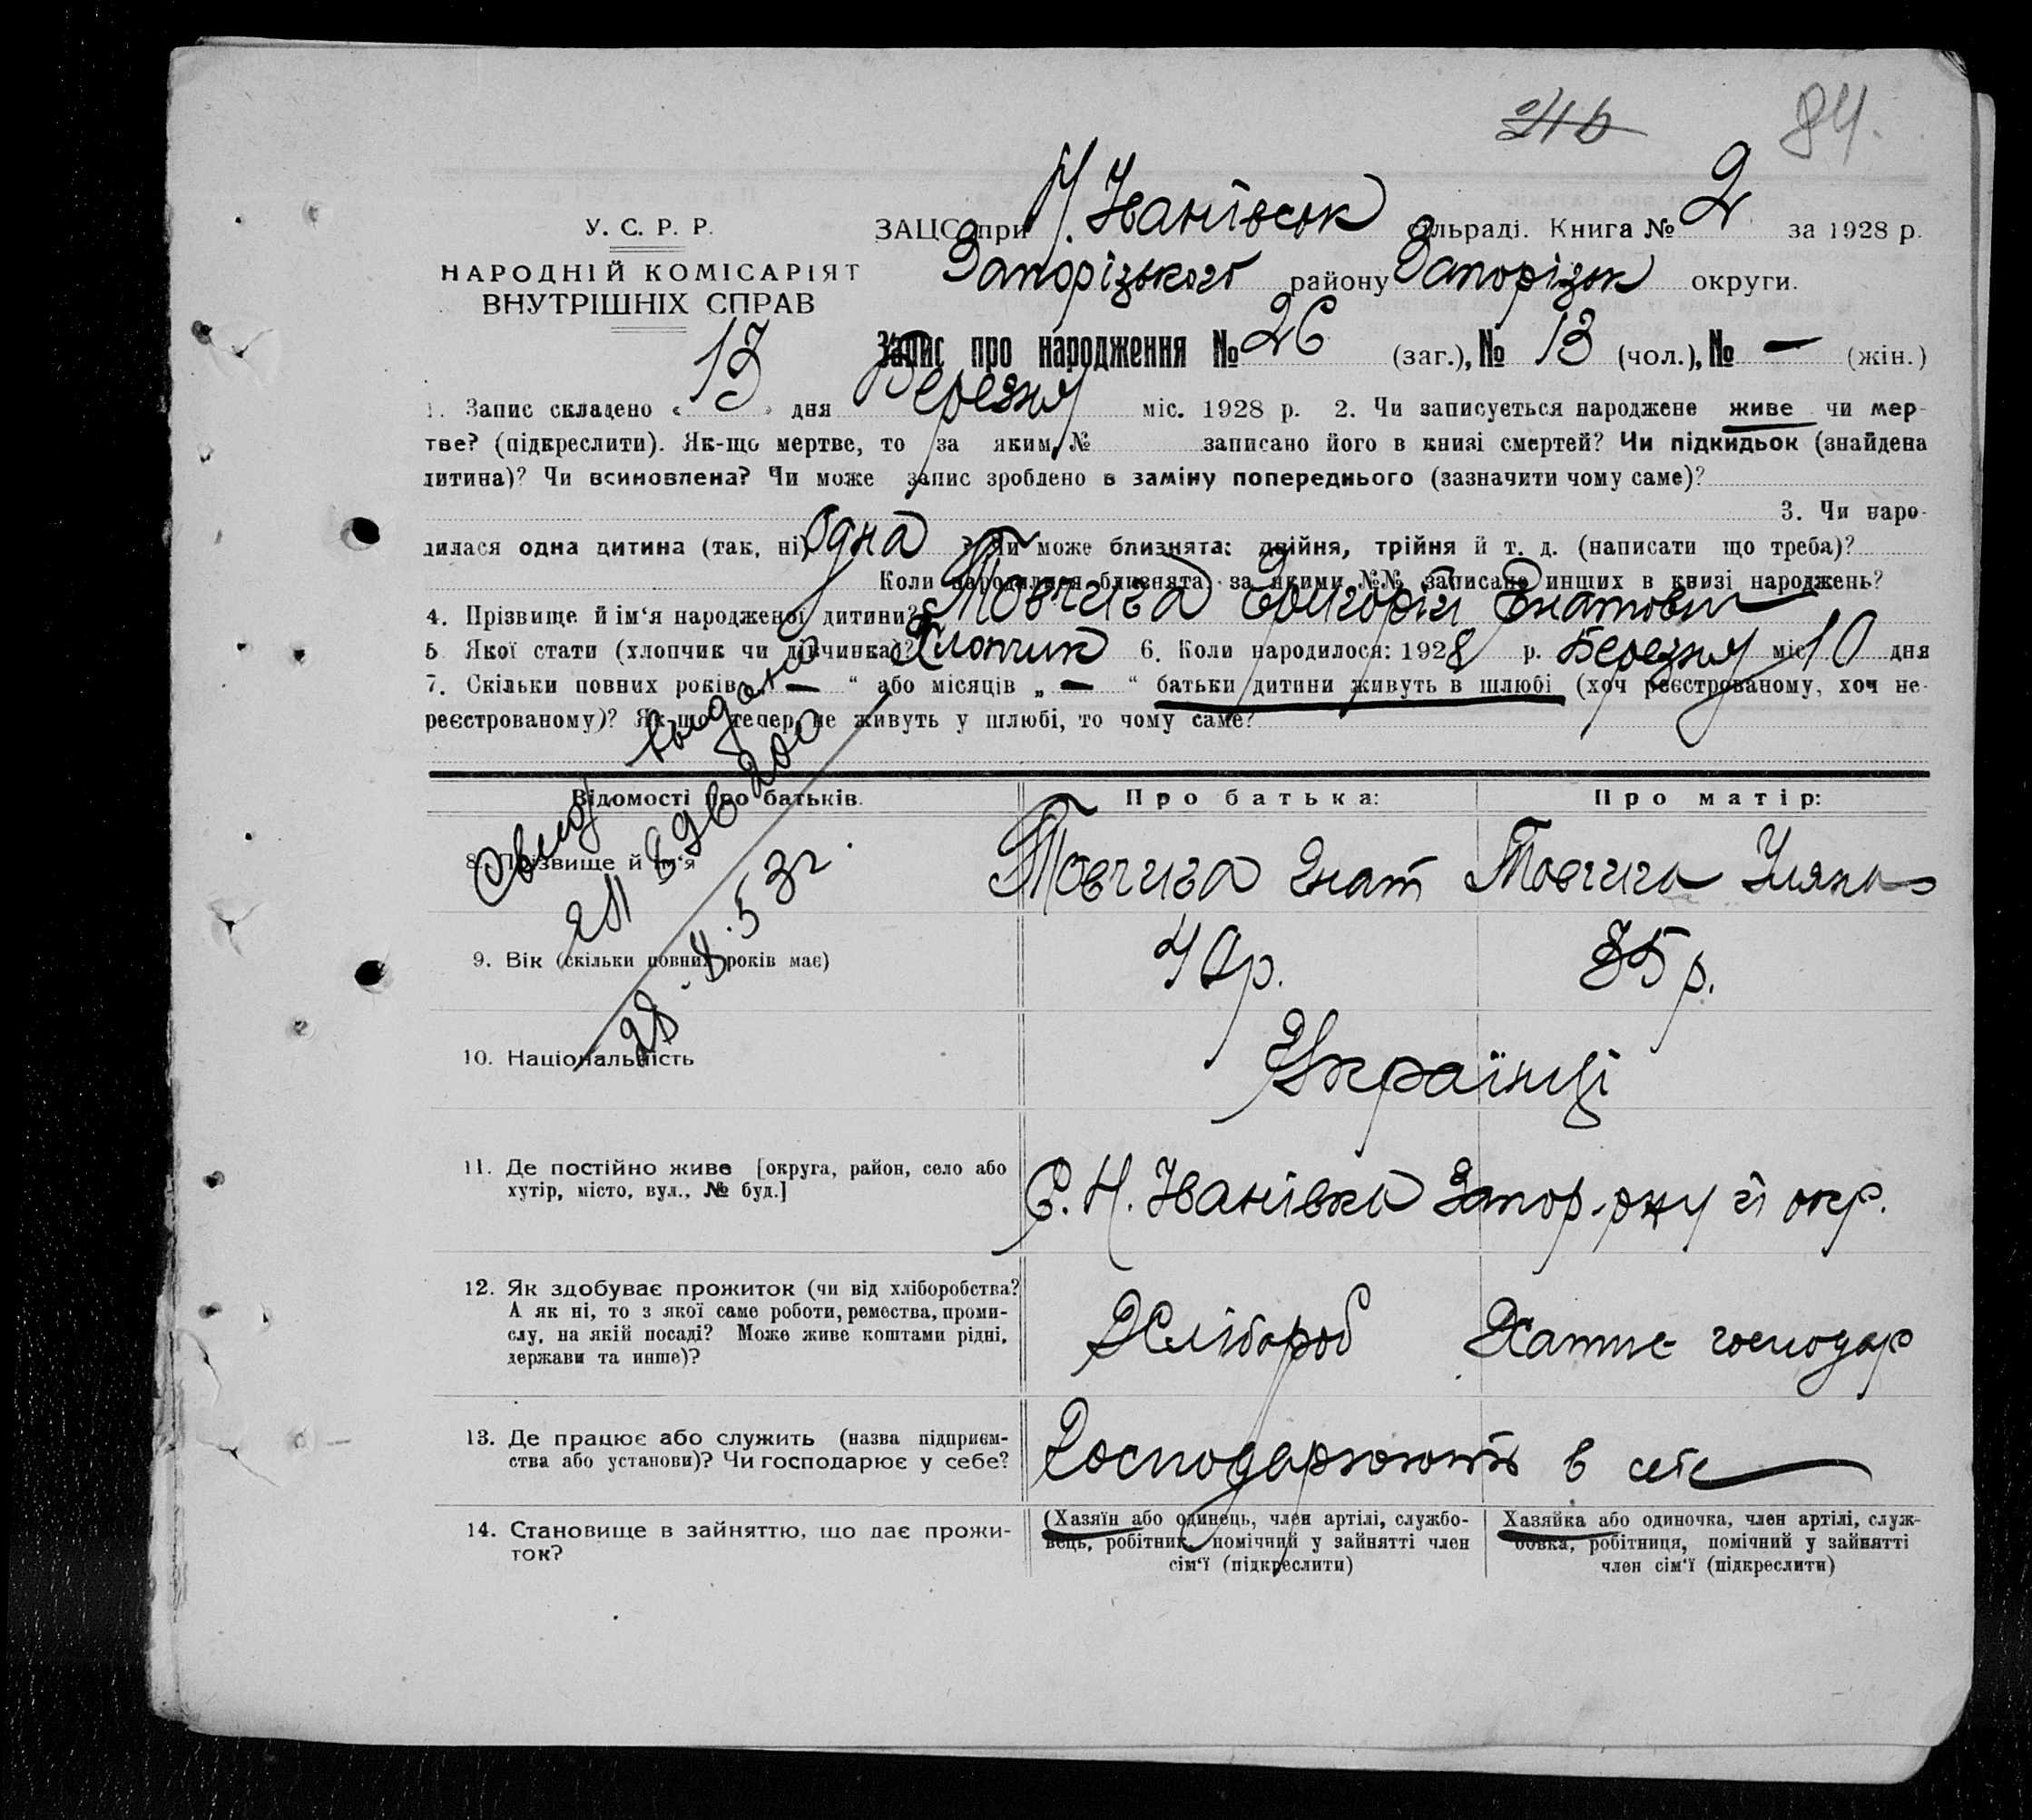 246 84.
У. С. Р. Р.
НАРОДНІЙ КОМІСАРІЯТ
ВНУТРІШНІХ СПРАВ
ЗАЦС при Н. Іванівськ сільраді. Книга № 2 за 1928 р.
Запорізького району Запорізьк округи.
Запис про народження № 26 (заг.), № 13 (чол.), № — (жін.)
1. Запис складено « 13 » дня Березня міс. 1928 р. 2. Чи записується народжене живе чи мер-
тве? (підкреслити). Як-що мертве, то за яким № записано його в книзі смертей? Чи підкидьок (знайдена
дитина)? Чи всиновлена? Чи може запис зроблено в заміну попереднього (зазначити чому саме)?
3. Чи наро-
дилася одна дитина (так, ні) одна ? Чи може близнята: двійня, трійня й т. д. (написати що треба)?
Коли народилися близнята за якими №№ записано инших в книзі народжень?
4. Прізвище й ім‘я народженої дитини? Товчига Григорій Гнатович
5 Якої стати (хлопчик чи дівчинка)? Хлопчик 6. Коли народилося: 1928 р. Березня міс 10 дня
7. Скільки повних років „ — “ або місяців „ — “ батьки дитини живуть в шлюбі (хоч реєстрованому, хоч не-
реєстрованому)? Як-що тепер не живуть у шлюбі, то чому саме?
Відомості про батьків. Про батька: Про матір:
8. Прізвище й ім‘я Товчига Гнат Товчига Уляна
9. Вік (скільки повних років має) 40 р. 35 р.
10. Національність Українці
11. Де постійно живе [округа, район, село або
хутір, місто, вул., № буд.]
С. Н. Іванівка Запор. р-ну й окр.
12. Як здобуває прожиток (чи від хліборобства?
А як ні, то з якої саме роботи, ремества, проми-
слу, на якій посаді? Може живе коштами рідні,
держави та инше)?
Хлібороб Хатнє господар
13. Де працює або служить (назва підприєм-
ства або установи)? Чи господарює у себе?
Господарюють в себе
14. Становище в зайняттю, що дає прожи-
ток?
(Хазяїн або одинець, член артілі, службо-
вець, робітник, помічний у зайнятті член
сім‘ї (підкреслити)
Хазяйка або одиночка, член артілі, служ-
бовка, робітниця, помічний у зайнятті
член сім‘ї (підкреслити)
Свид выдано
53 г.